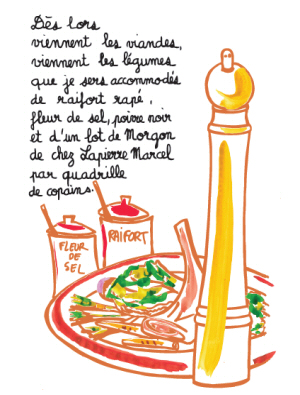 Dès lors
viennent les viandes,
viennent les légumes
que je sers accommodés
de raifort rapé,
fleur de sel, poivre noir
et d'un lot de Morgon
de chez Lapierre Marcel
par quadrille
de copains.
FLEUR
DE
SEL
RAIFORT